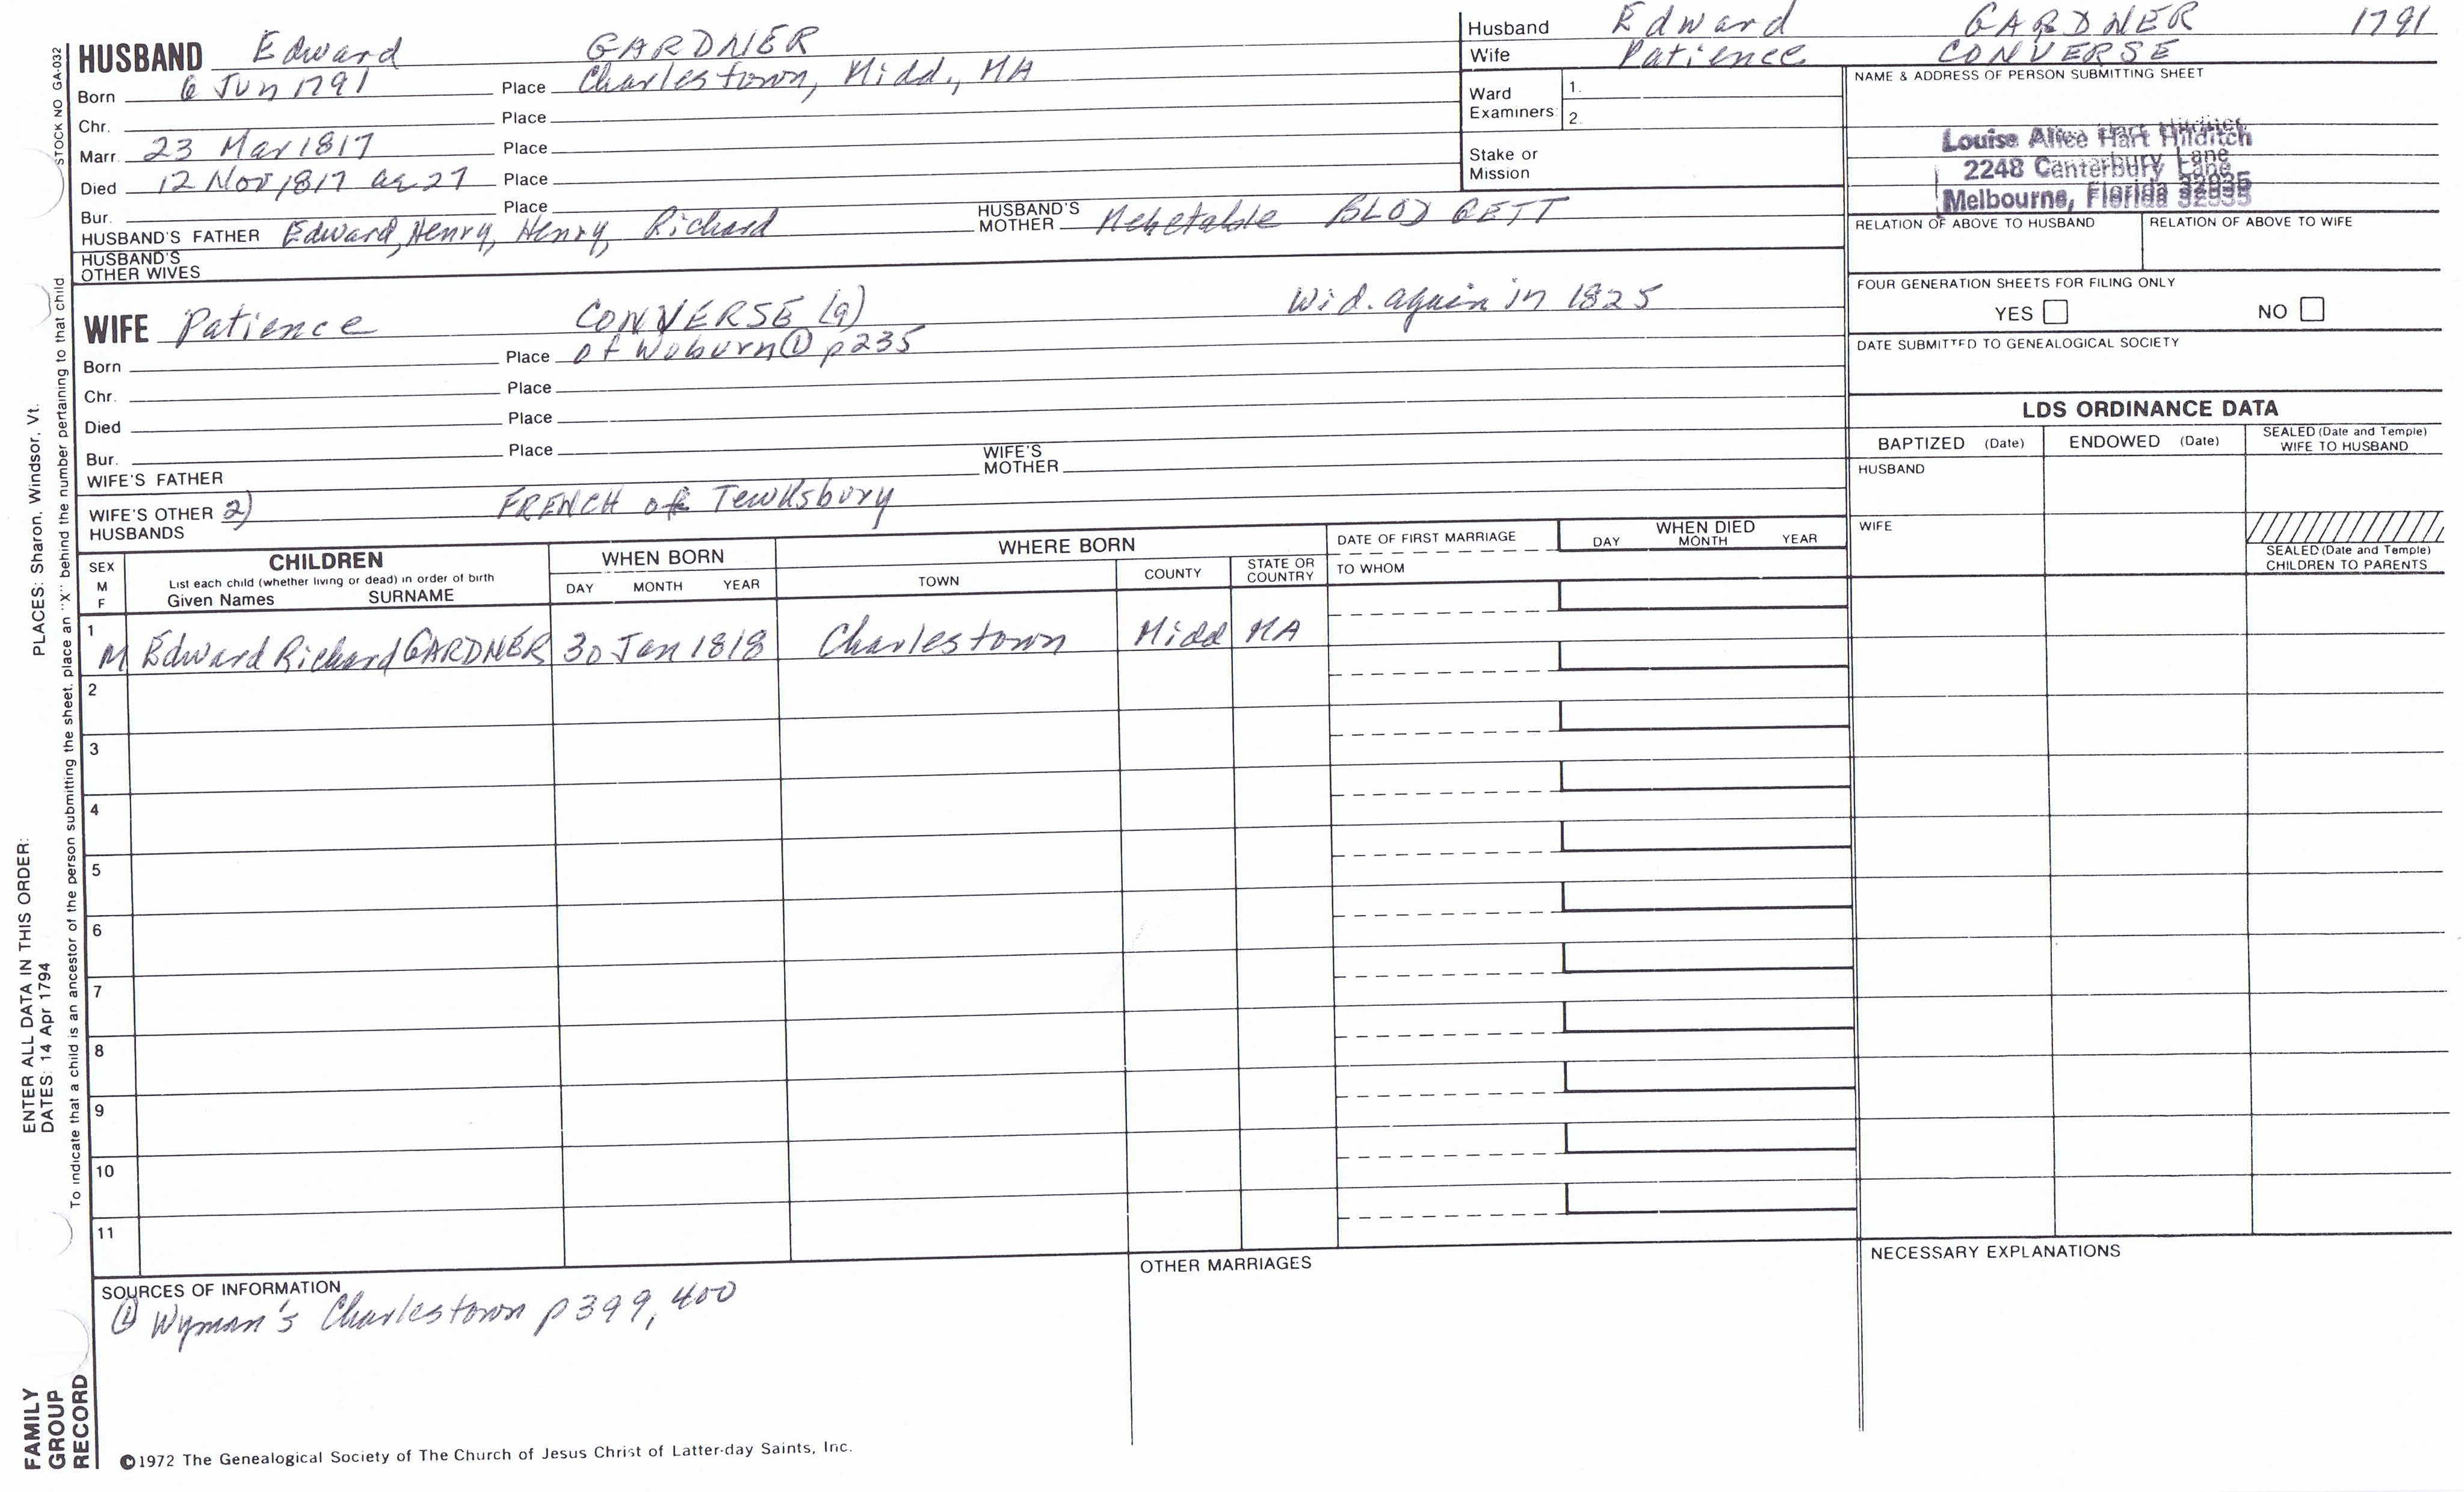 HUSBAND Edward GARDNER
Born 6 Jun 1791 Place Charlestown, Midd., MA
Chr. Place
Marr. 23 Mar 1817 Place
Died 12 Nov 1817 ae 27 Place
Bur. Place
HUSBAND'S FATHER Edward, Henry, Henry, Richard HUSBAND'S MOTHER Mehetable BLODGETT
HUSBAND'S OTHER WIVES
WIFE Patience CONVERSE (9) Wid. again in 1825
Born Place of Woburn ① p235
Chr. Place
Died Place
Bur. Place
WIFE'S FATHER WIFE'S MOTHER
WIFE'S OTHER HUSBANDS 2) FRENCH of Tewksbury
Husband Edward GARDNER 1791
Wife Patience CONVERSE
Ward Examiners: 1.
2.
Stake or Mission
NAME & ADDRESS OF PERSON SUBMITTING SHEET
Louise Alice Hart Hilditch
2248 Canterbury Lane
Melbourne, Florida 32935
RELATION OF ABOVE TO HUSBAND RELATION OF ABOVE TO WIFE
FOUR GENERATION SHEETS FOR FILING ONLY
YES NO
DATE SUBMITTED TO GENEALOGICAL SOCIETY
LDS ORDINANCE DATA
BAPTIZED (Date) ENDOWED (Date) SEALED (Date and Temple) WIFE TO HUSBAND
HUSBAND
WIFE
SEALED (Date and Temple) CHILDREN TO PARENTS
SEX M F
CHILDREN
List each child (whether living or dead) in order of birth
Given Names SURNAME
WHEN BORN
DAY MONTH YEAR
WHERE BORN
TOWN COUNTY STATE OR COUNTRY
DATE OF FIRST MARRIAGE
TO WHOM
WHEN DIED
DAY MONTH YEAR
1 M Edward Richard GARDNER 30 Jan 1818 Charlestown Midd MA
2
3
4
5
6
7
8
9
10
11
SOURCES OF INFORMATION
① Wyman's Charlestown p399, 400
OTHER MARRIAGES
NECESSARY EXPLANATIONS
©1972 The Genealogical Society of The Church of Jesus Christ of Latter-day Saints, Inc.
STOCK NO GA-032
To indicate that a child is an ancestor of the person submitting the sheet, place an "X" behind the number pertaining to that child
ENTER ALL DATA IN THIS ORDER:
DATES: 14 Apr 1794 PLACES: Sharon, Windsor, Vt.
FAMILY
GROUP
RECORD